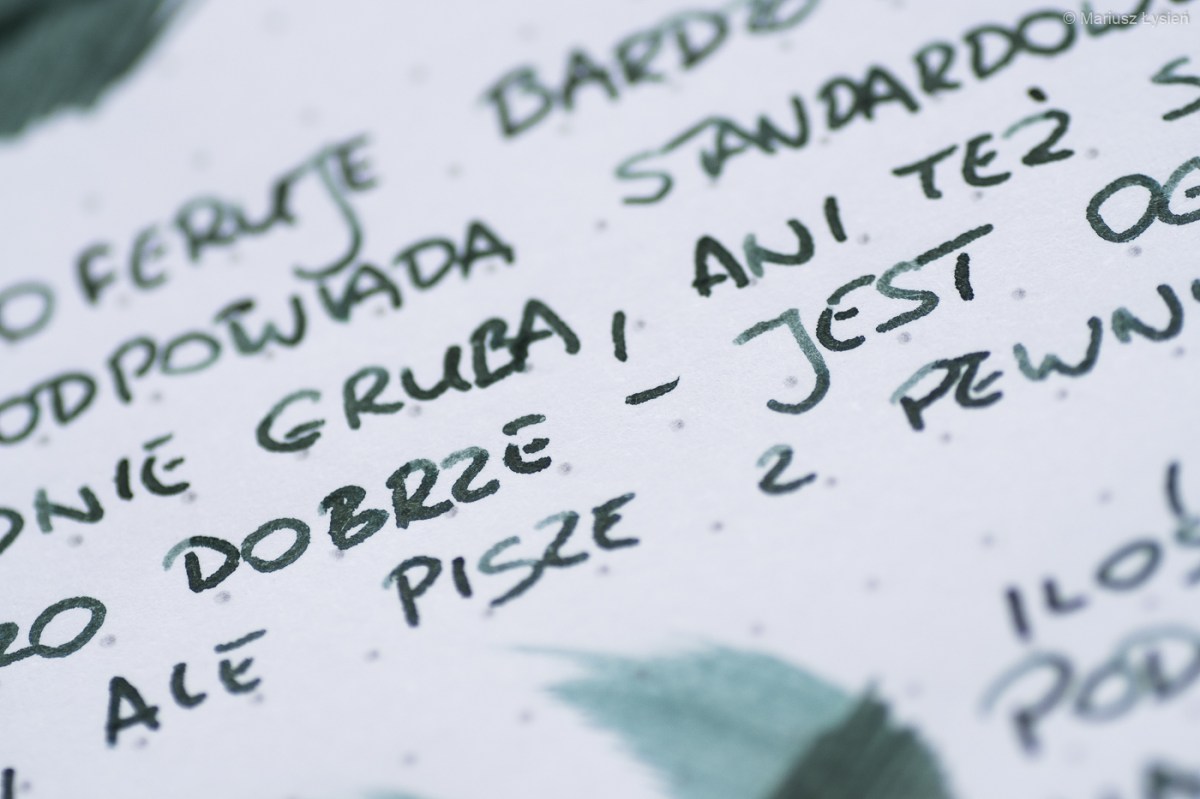 © Mariusz Łysień
OFERUJE BARDZO
ODPOWIADA STANDARDOW
DNIE GRUBA, ANI TEŻ S
ZO DOBRZE - JEST OG
ALE PISZE Z PEWN
ILOŚ
POD